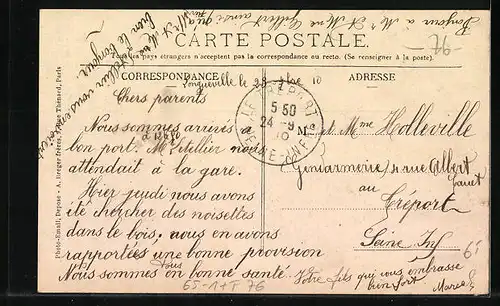 Bonjour a Mr et Mme Gillet ainsi qu'à
Mr et Mme
bien le bonjour
CARTE POSTALE
Tous les pays étrangers n'acceptent pas la correspondance au recto. (Se renseigner à la poste).
CORRESPONDANCE
ADRESSE
Longueville le 23
Chers parents
Nous sommes arrivés à
bon port. M. Etillier nous
attendait à la gare.
Hier jeudi nous avons
été chercher des noisettes
dans le bois, nous en avons
rapportées une bonne provision
Nous sommes tous en bonne santé.
Votre fils qui vous embrasse
bien fort. Marcel
LE TREPORT
5 50
24 - 9
SEINE-INFRE
et Mme Holleville
Gendarmerie, 4 rue Albert
au
Tréport
Seine Inf
Photo-Email, Déposé - A. Breger frères, 9, rue Thénard, Paris
76
65-1+T 76